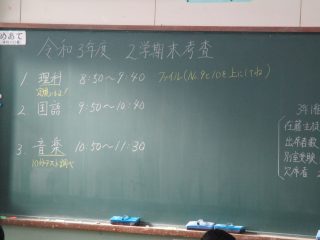 めあて
令和3年度 2学期末考査
1. 理科 8:50~9:40 ファイル(No.9と10を上にしてね)
2. 国語 9:50~10:40
3. 音楽 10:50~11:30
3年1組
佐藤主徒
出席者数
別室受験
欠席者